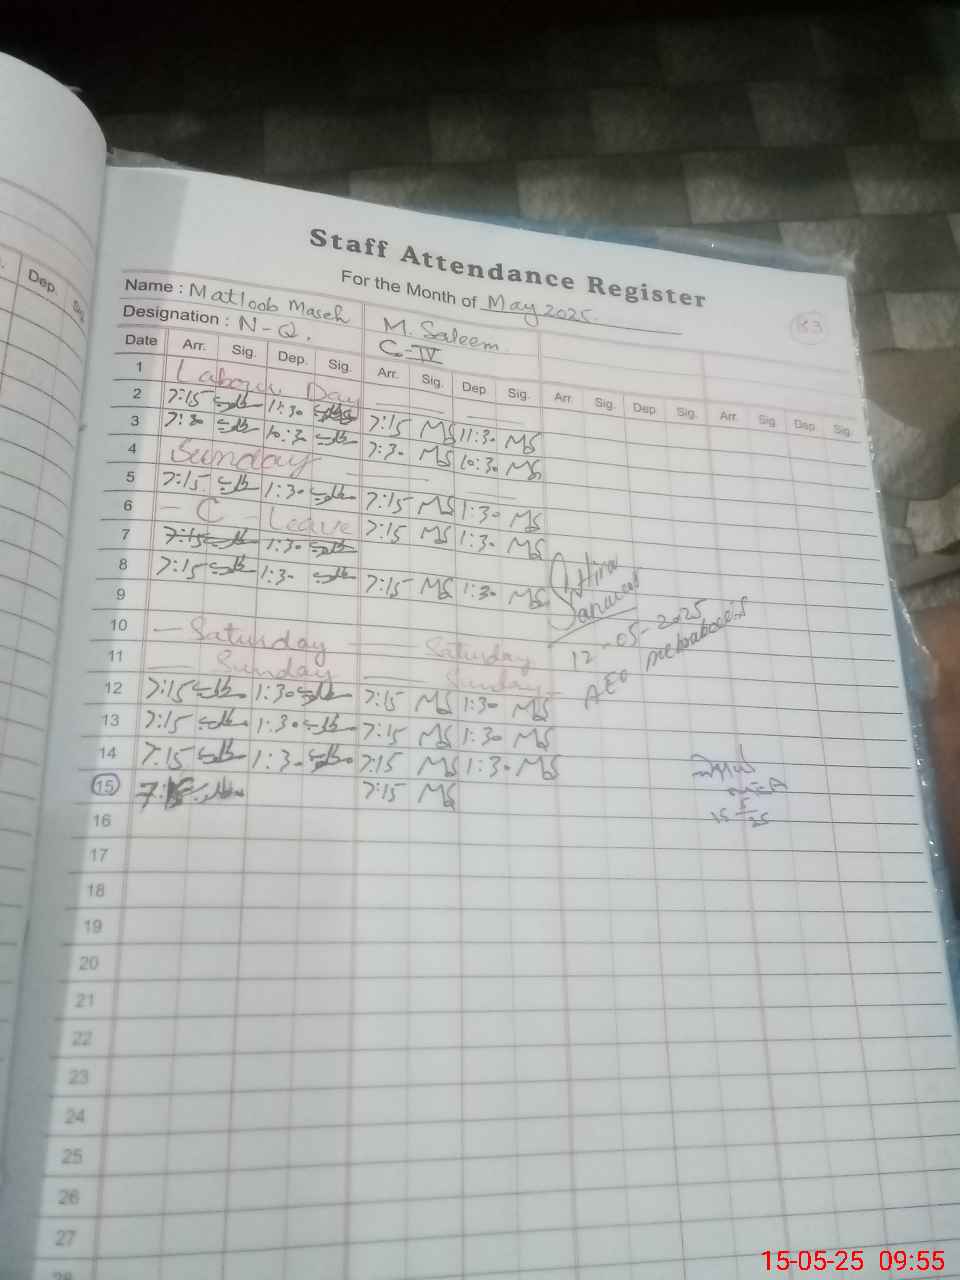 Staff Attendance Register
For the Month of May 2025
83
Name : Matloob Maseh M. Saleem
Designation : N-Q. C-IV
Dep. Sig.
Date Arr. Sig. Dep. Sig. Arr. Sig. Dep. Sig. Arr. Sig. Dep. Sig. Arr. Sig. Dep. Sig.
1 Labour Day
2 7:15 1:30 7:15 MS 11:30 MS
3 7:30 10:30 7:30 MS 10:30 MS
4 Sunday
5 7:15 1:30 7:15 MS 1:30 MS
6 C - Leave 7:15 MS 1:30 MS
7 7:15 1:30
8 7:15 1:30 7:15 MS 1:30 MS
9
10 Saturday Saturday
11 Sunday Sunday
12 7:15 1:30 7:15 MS 1:30 MS
13 7:15 1:30 7:15 MS 1:30 MS
14 7:15 1:30 7:15 MS 1:30 MS
15 7:15 7:15 MS
16
17
18
19
20
21
22
23
24
25
26
27
28
Hira
12-05-2025
AEO
15-05-25 09:55